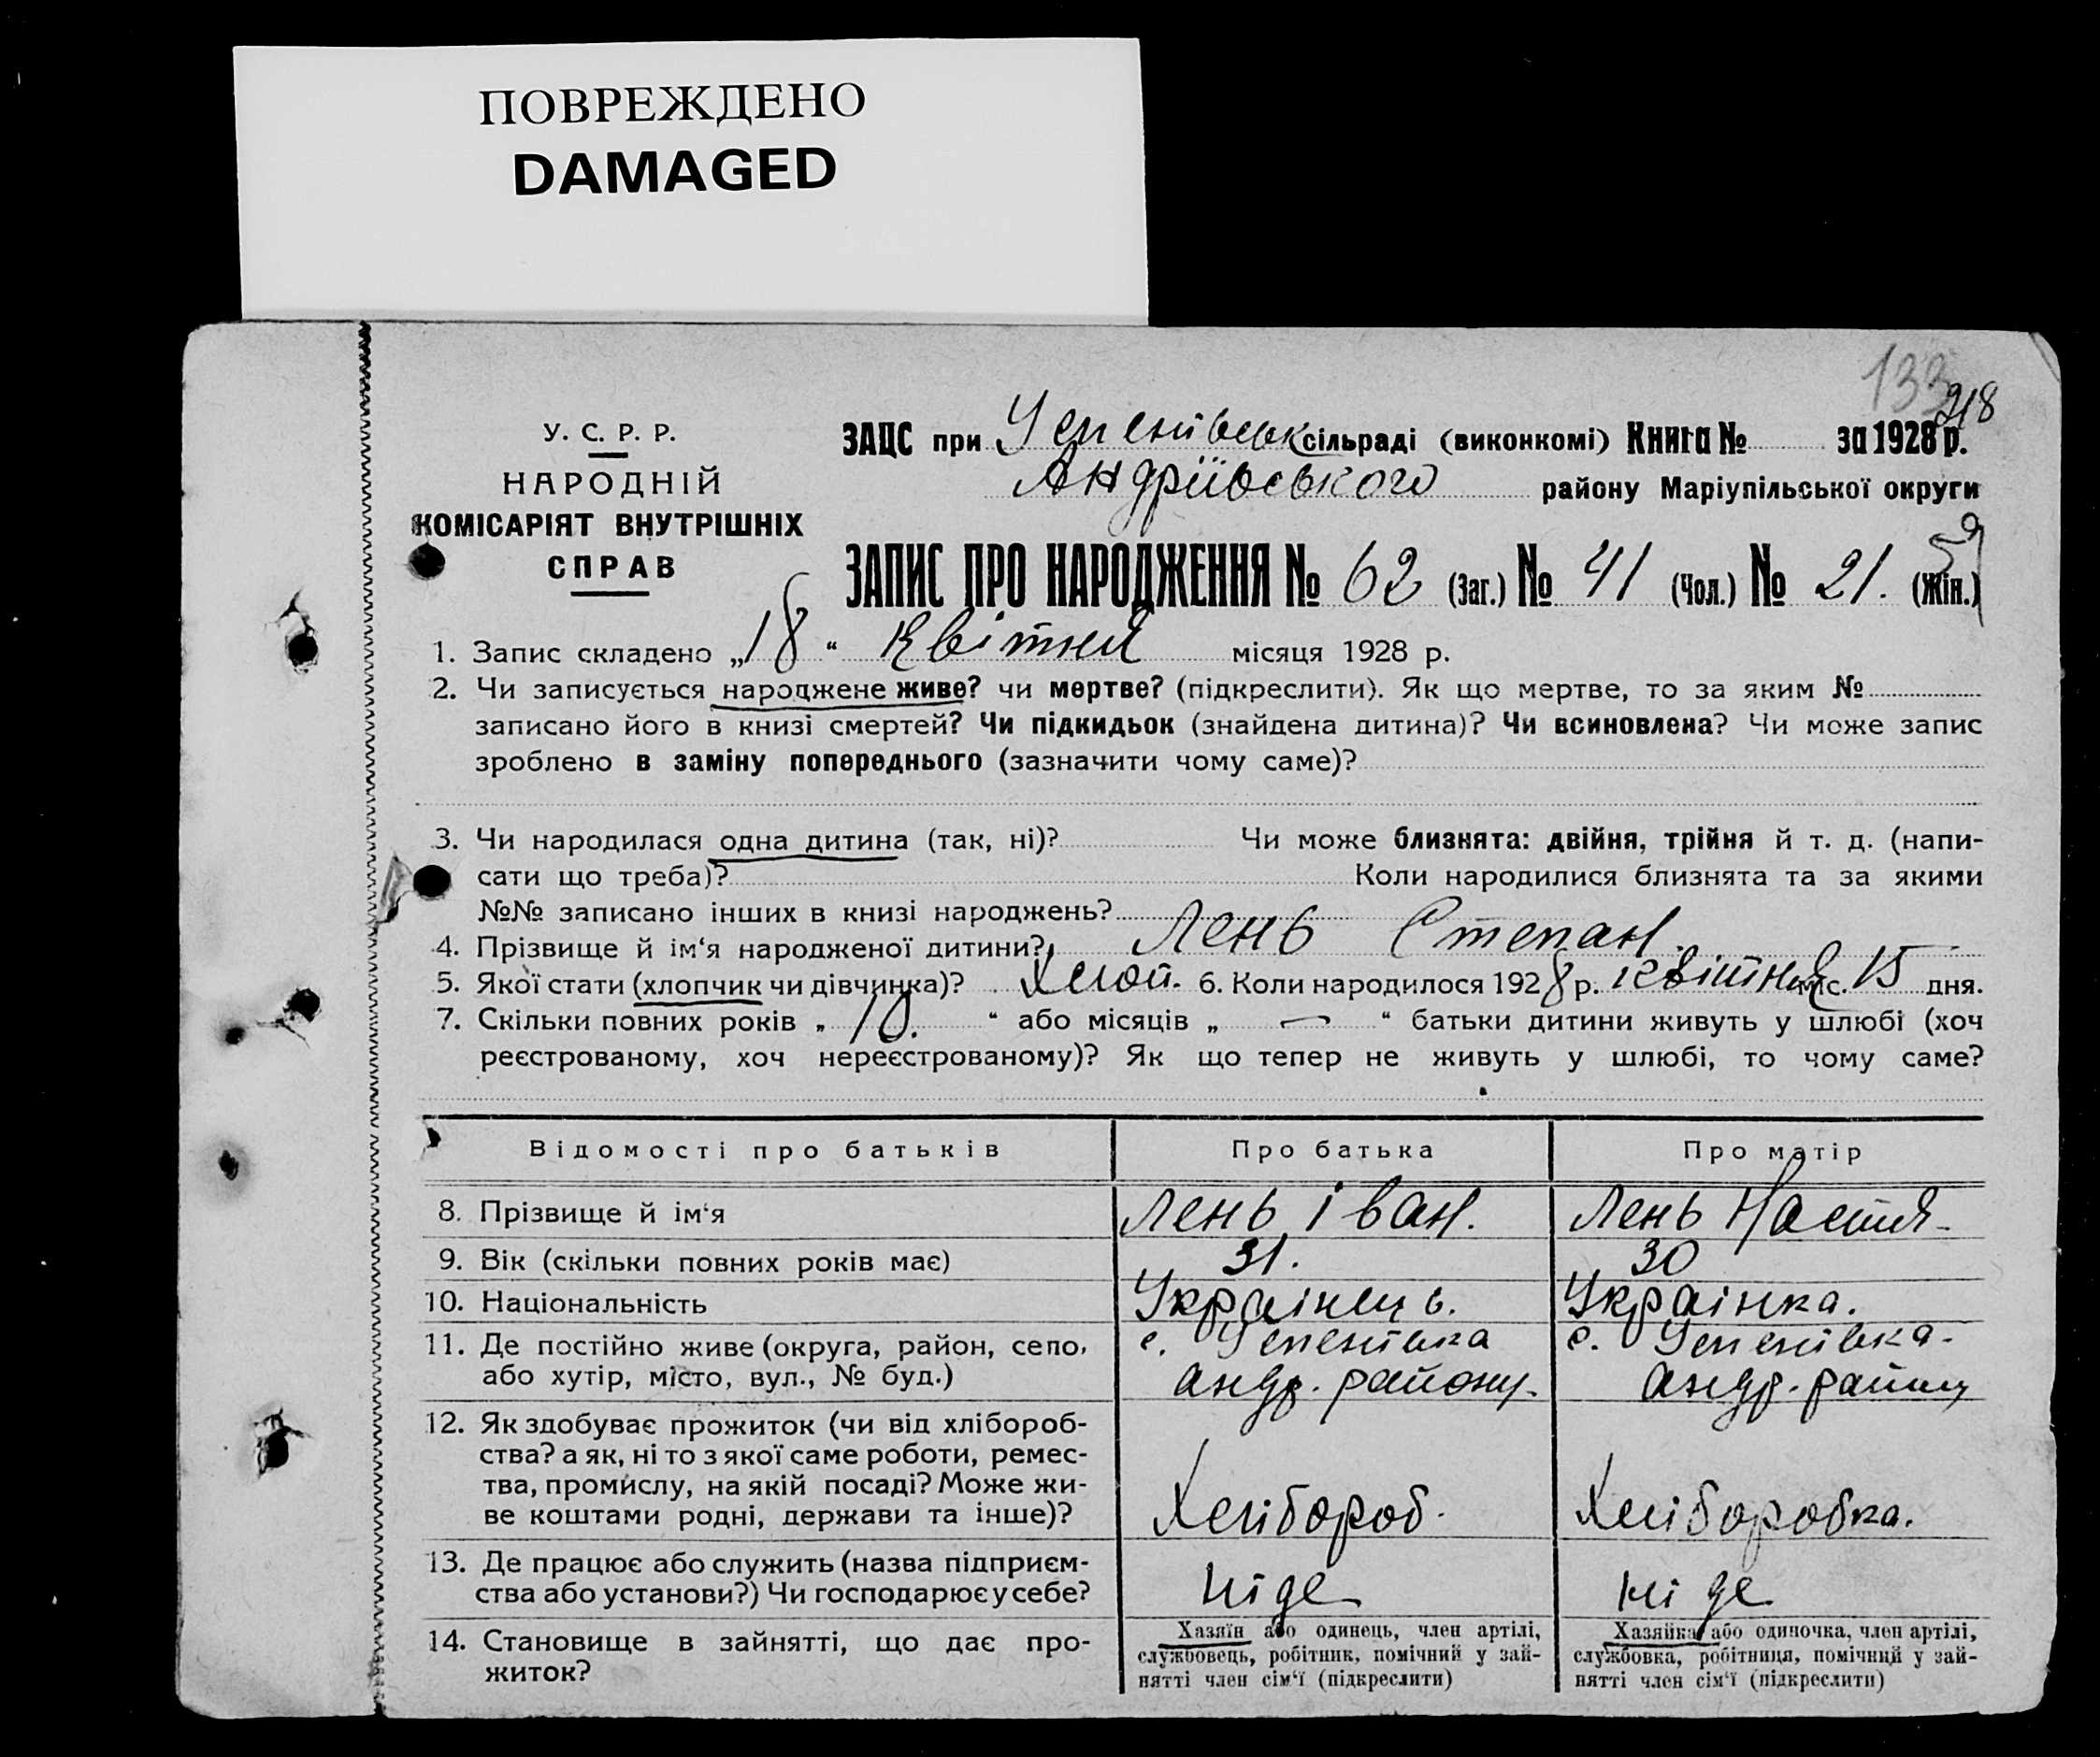 ПОВРЕЖДЕНО
DAMAGED
133
218
У. С. Р. Р.
НАРОДНІЙ
КОМІСАРІЯТ ВНУТРІШНІХ
СПРАВ
ЗАЦС при Успенівськ сільраді (виконкомі) Книга № за 1928 р.
Андріївського району Маріупільської округи
ЗАПИС ПРО НАРОДЖЕННЯ № 62 (Заг.) № 41 (Чол.) № 21. (Жін.)
1. Запис складено „18“ Квітня місяця 1928 р.
2. Чи записується народжене живе? чи мертве? (підкреслити). Як що мертве, то за яким №
записано його в книзі смертей? Чи підкидьок (знайдена дитина)? Чи всиновлена? Чи може запис
зроблено в заміну попереднього (зазначити чому саме)?
3. Чи народилася одна дитина (так, ні)? Чи може близнята: двійня, трійня й т. д. (напи-
сати що треба)? Коли народилися близнята та за якими
№№ записано інших в книзі народжень?
4. Прізвище й ім‘я народженої дитини? Лень Степан.
5. Якої стати (хлопчик чи дівчинка)? Хлоп. 6. Коли народилося 1928 р. квітня міс. 15 дня.
7. Скільки повних років „10.“ або місяців „—“ батьки дитини живуть у шлюбі (хоч
реєстрованому, хоч нереєстрованому)? Як що тепер не живуть у шлюбі, то чому саме?
Відомості про батьків Про батька Про матір
8. Прізвище й ім‘я Лень Іван. Лень Настя
9. Вік (скільки повних років має) 31. 30
10. Національність Українець. Українка.
11. Де постійно живе (округа, район, село, с. Успенівка с. Успенівка
або хутір, місто, вул., № буд.) Андр. району. Андр. району
12. Як здобуває прожиток (чи від хлібороб-
ства? а як, ні то з якої саме роботи, ремес-
тва, промислу, на якій посаді? Може жи-
ве коштами родні, держави та інше)? Хлібороб. Хліборобка.
13. Де працює або служить (назва підприєм-
ства або установи?) Чи господарює у себе? Ніде Ніде
14. Становище в зайнятті, що дає про-
житок?
Хазяїн або одинець, член артілі,
службовець, робітник, помічний у зай-
нятті член сім‘ї (підкреслити)
Хазяйка або одиночка, член артілі,
службовка, робітниця, помічний у зай-
нятті член сім‘ї (підкреслити)